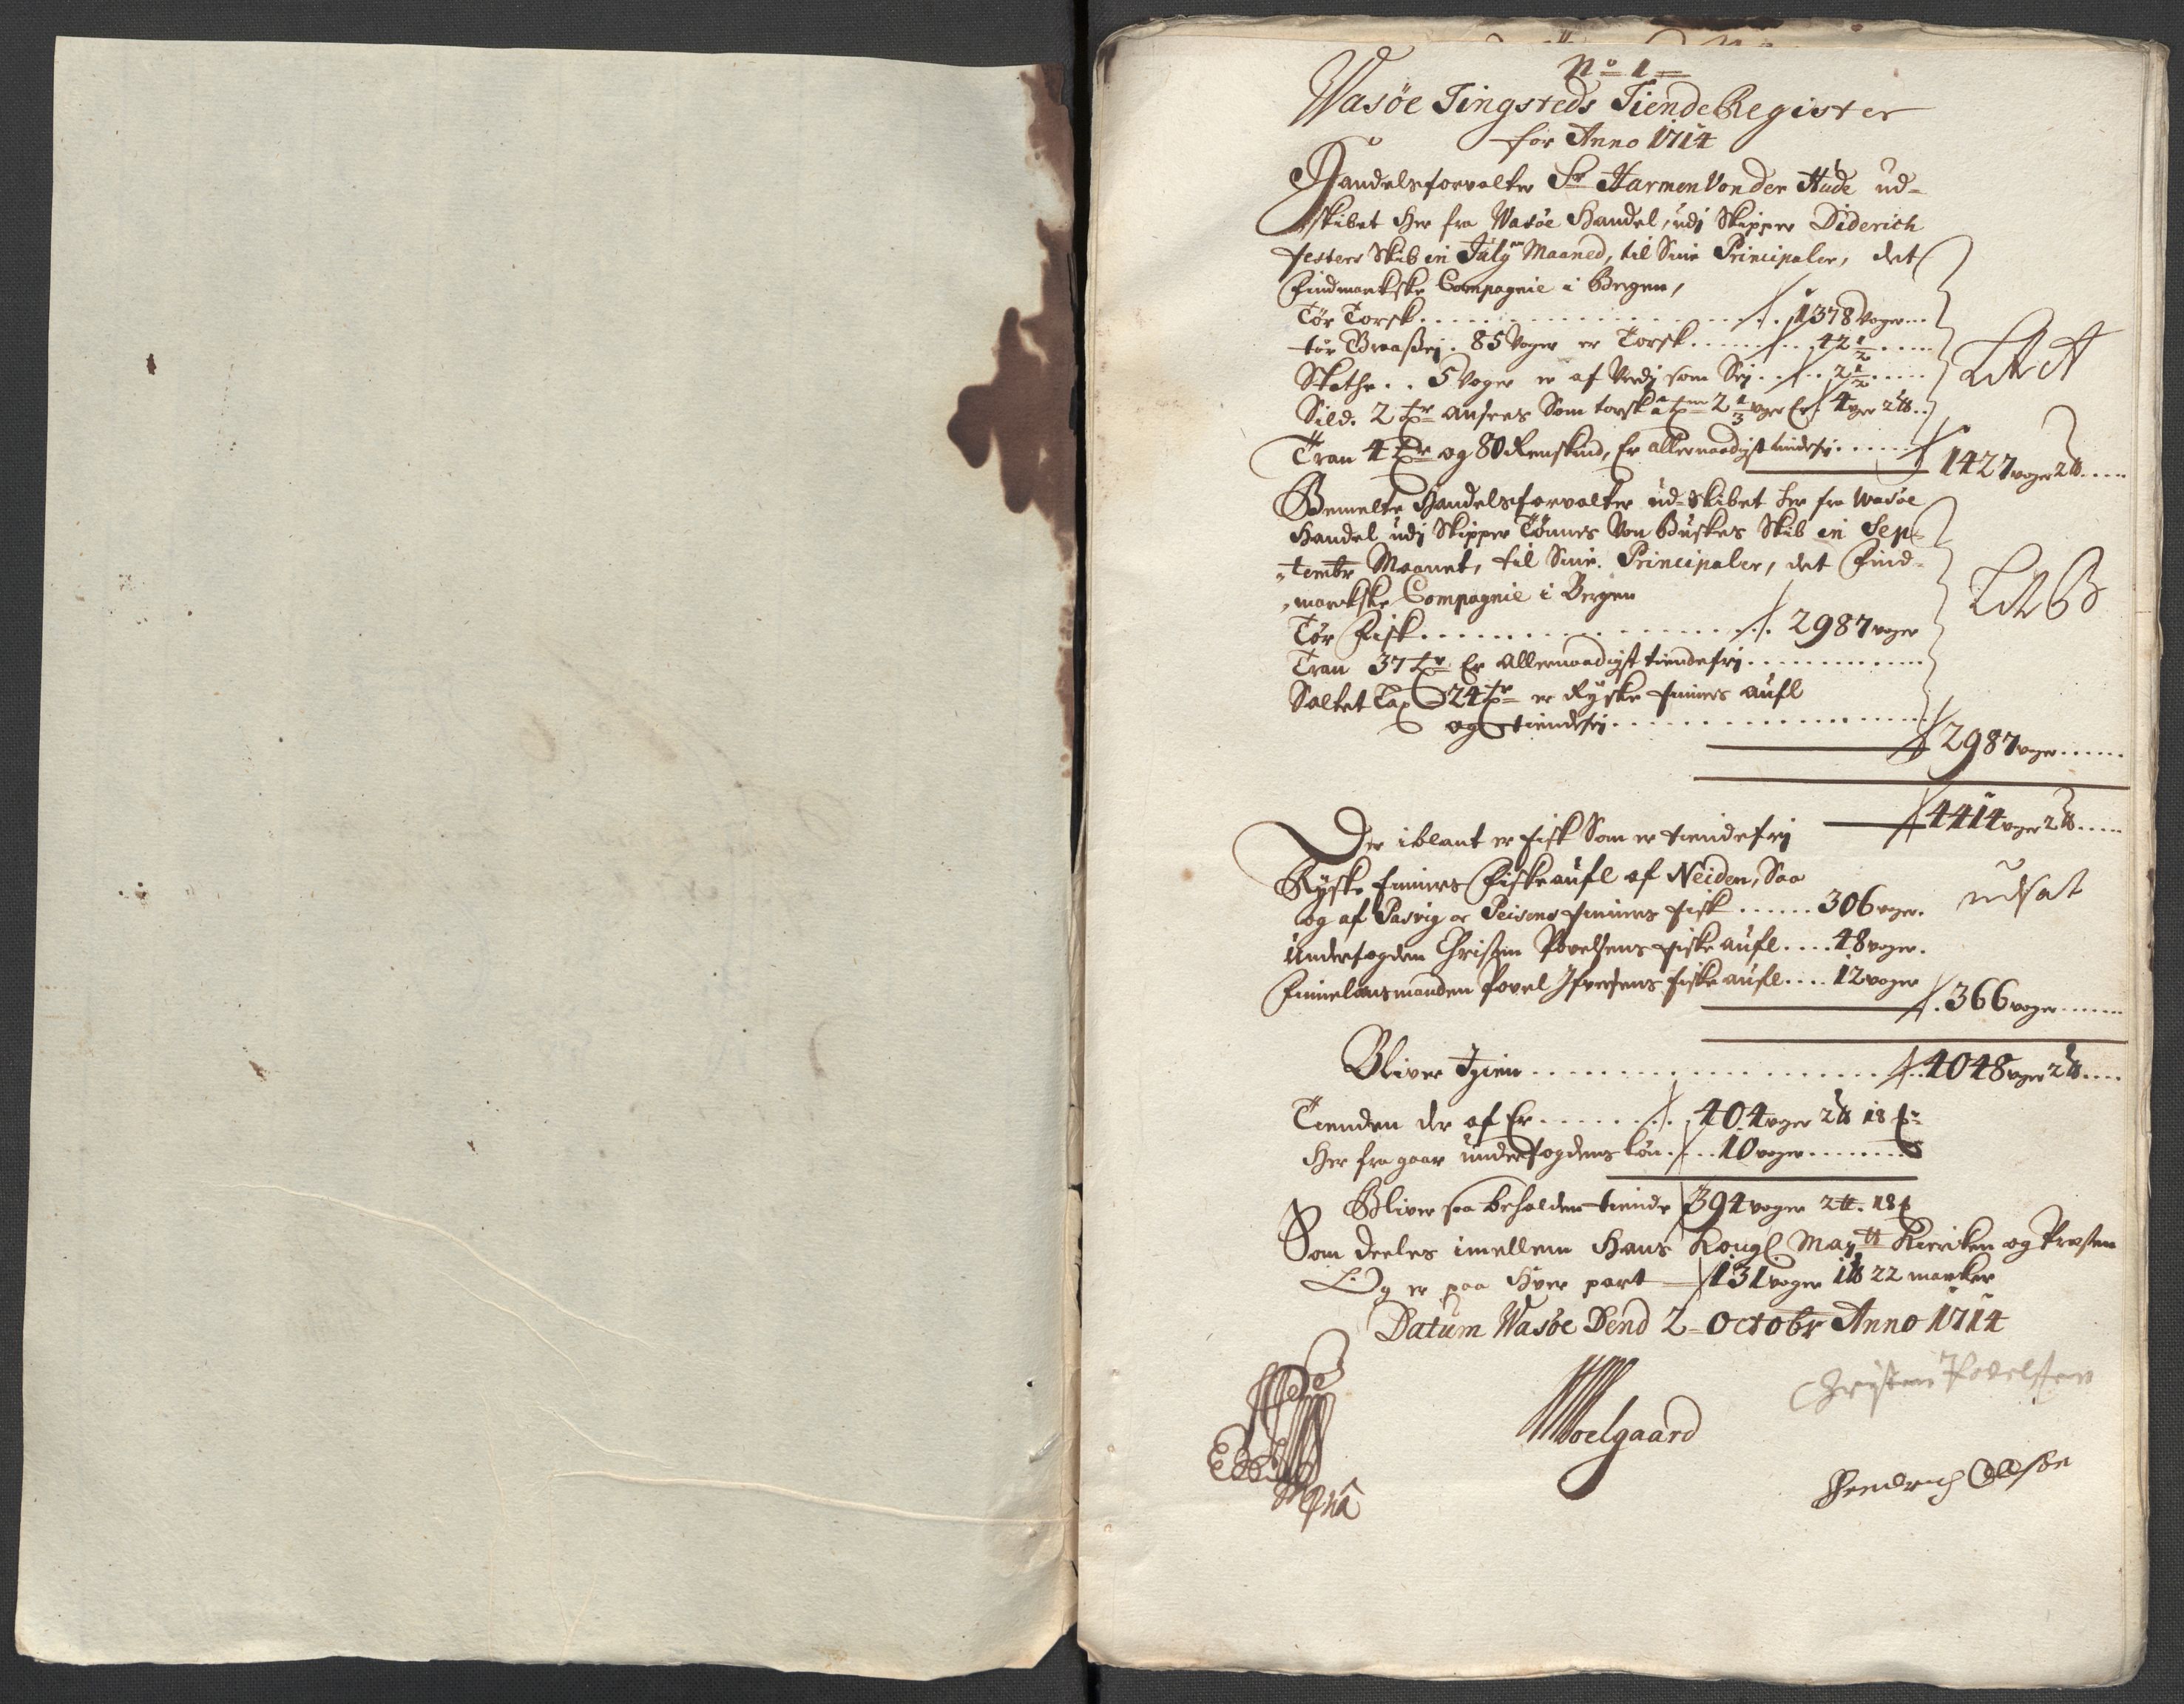 No 1
Wasöe Tingsteds Tiende Register
for Anno 1714
Handelsforvalter Sr Harmen Von der Hude ud-
skibet Her fra Wasöe Handel, udj Skipper Diderich
festers Skib in July Maaned, til Sine Principaler, det
Findmarkske Compagnie i Bergen,
Tör Torsk . . . 1378 Voger
tör Braaßej. 85 Voger er Torsk . . . 42 1/2
Skathe . . 5 Voger er af Verdj som Sej . . . 2 1/2
Sild. 2 tr ansees Som torsk a tn 2 1/3 vger Er 4 vger 2 ℔
Lit A
Tran 4 Tr og 80 Renskind, Er allernaadigst tiendefrj . . . 1427 voger 2 ℔
Bemelte Handelsforvalter ud-Skibet her fra Wasöe
Handel udj Skipper Tönnes Von Buskes Skib in Sep-
tembr Maanet, til Sine Principaler, det Find-
markske Compagnie i Bergen
Lit B
Tör Fisk . . . 2987 voger
Tran 37 tr Er Allernaadigst tiendefrj
Saltet Lax 24 tr er Ryske finners aufl
og tiendefrj . . . 2987 voger
4414 voger 2 ℔
Der iblant er fisk Som er tiendefrj
Ryske finners Fiske aufl af Neiden, Saa
og af Pasvig og Peisens finners fisk . . . 306 voger. udsat
Underfogden Christen Povelsens fiske aufl . . . 48 voger.
Finnelensmanden Povel Ifversens fiske aufl . . . 12 voger
366 voger
Bliver Igien . . . 4048 voger 2 ℔
Tienden der af Er . . . 404 voger 2 ℔ 18
Her fra gaar underfogdens lön . . . 10 voger
Bliver saa beholden tiende 394 voger 2 ℔. 18
Som deeles imellem Hans Kongl. Maytt Kircken og Præsten
Og er paa Hver part 131 voger 1 ℔ 22 marker
Datum Wasöe Dend 2 Octobr Anno 1714
Christen Povelssen
Woelgaard
Hendrich Olsön